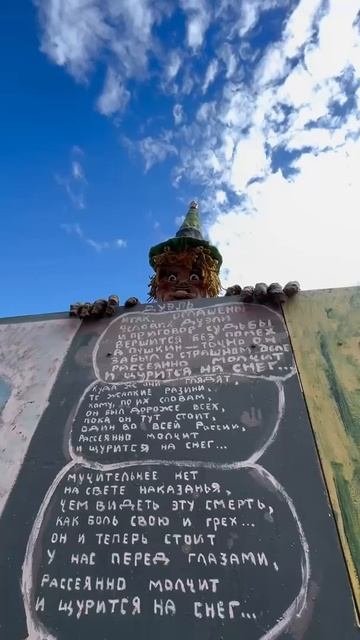 ДУЭЛЬ
ИТАК, ОГЛАШЕНЫ
УСЛОВЬЯ ДУЭЛИ
И ПРИГОВОР СУДЬБЫ
ВЕРШИТСЯ БЕЗ ПОМЕХ
А ПУШКИН — ТОЧНО ОН
ЗАБЫЛ О СТРАШНОМ ДЕЛЕ
РАССЕЯННО МОЛЧИТ
И ЩУРИТСЯ НА СНЕГ...
КУДА Ж ОНИ ГЛЯДЯТ,
ТЕ ЖАЛКИЕ РАЗИНИ,
КОМУ, ПО ИХ СЛОВАМ,
ОН БЫЛ ДОРОЖЕ ВСЕХ,
ПОКА ОН ТУТ СТОИТ,
ОДИН ВО ВСЕЙ РОССИИ,
РАССЕЯННО МОЛЧИТ
И ЩУРИТСЯ НА СНЕГ...
МУЧИТЕЛЬНЕЕ НЕТ
НА СВЕТЕ НАКАЗАНЬЯ,
ЧЕМ ВИДЕТЬ ЭТУ СМЕРТЬ,
КАК БОЛЬ СВОЮ И ГРЕХ...
ОН И ТЕПЕРЬ СТОИТ
У НАС ПЕРЕД ГЛАЗАМИ,
РАССЕЯННО МОЛЧИТ
И ЩУРИТСЯ НА СНЕГ...